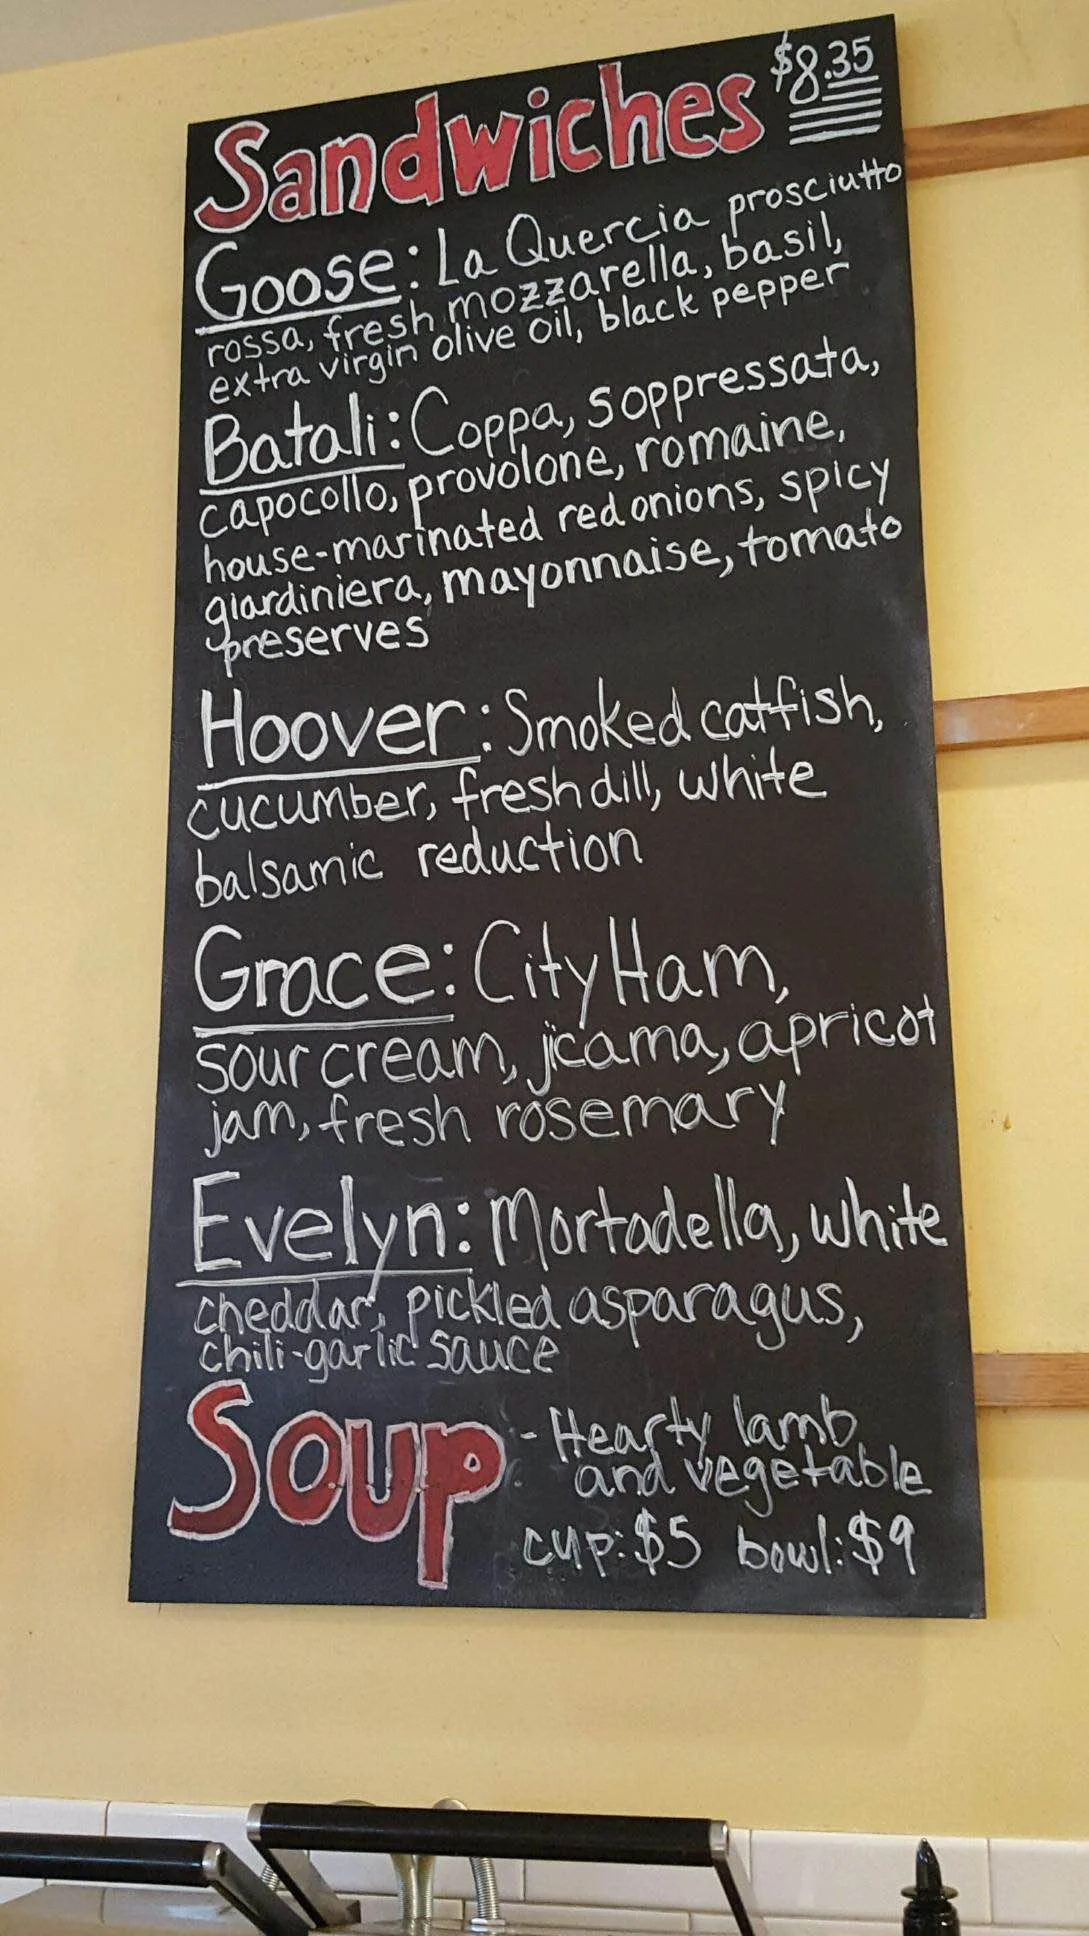 Sandwiches $8.35
Goose: La Quercia prosciutto
rossa, fresh mozzarella, basil,
extra virgin olive oil, black pepper
Batali: Coppa, soppressata,
capocollo, provolone, romaine,
house-marinated red onions, spicy
giardiniera, mayonnaise, tomato
preserves
Hoover: Smoked catfish,
cucumber, fresh dill, white
balsamic reduction
Grace: City Ham,
sour cream, jicama, apricot
jam, fresh rosemary
Evelyn: Mortadella, white
cheddar, pickled asparagus,
chili-garlic sauce
Soup - Hearty lamb
and vegetable
cup: $5 bowl: $9